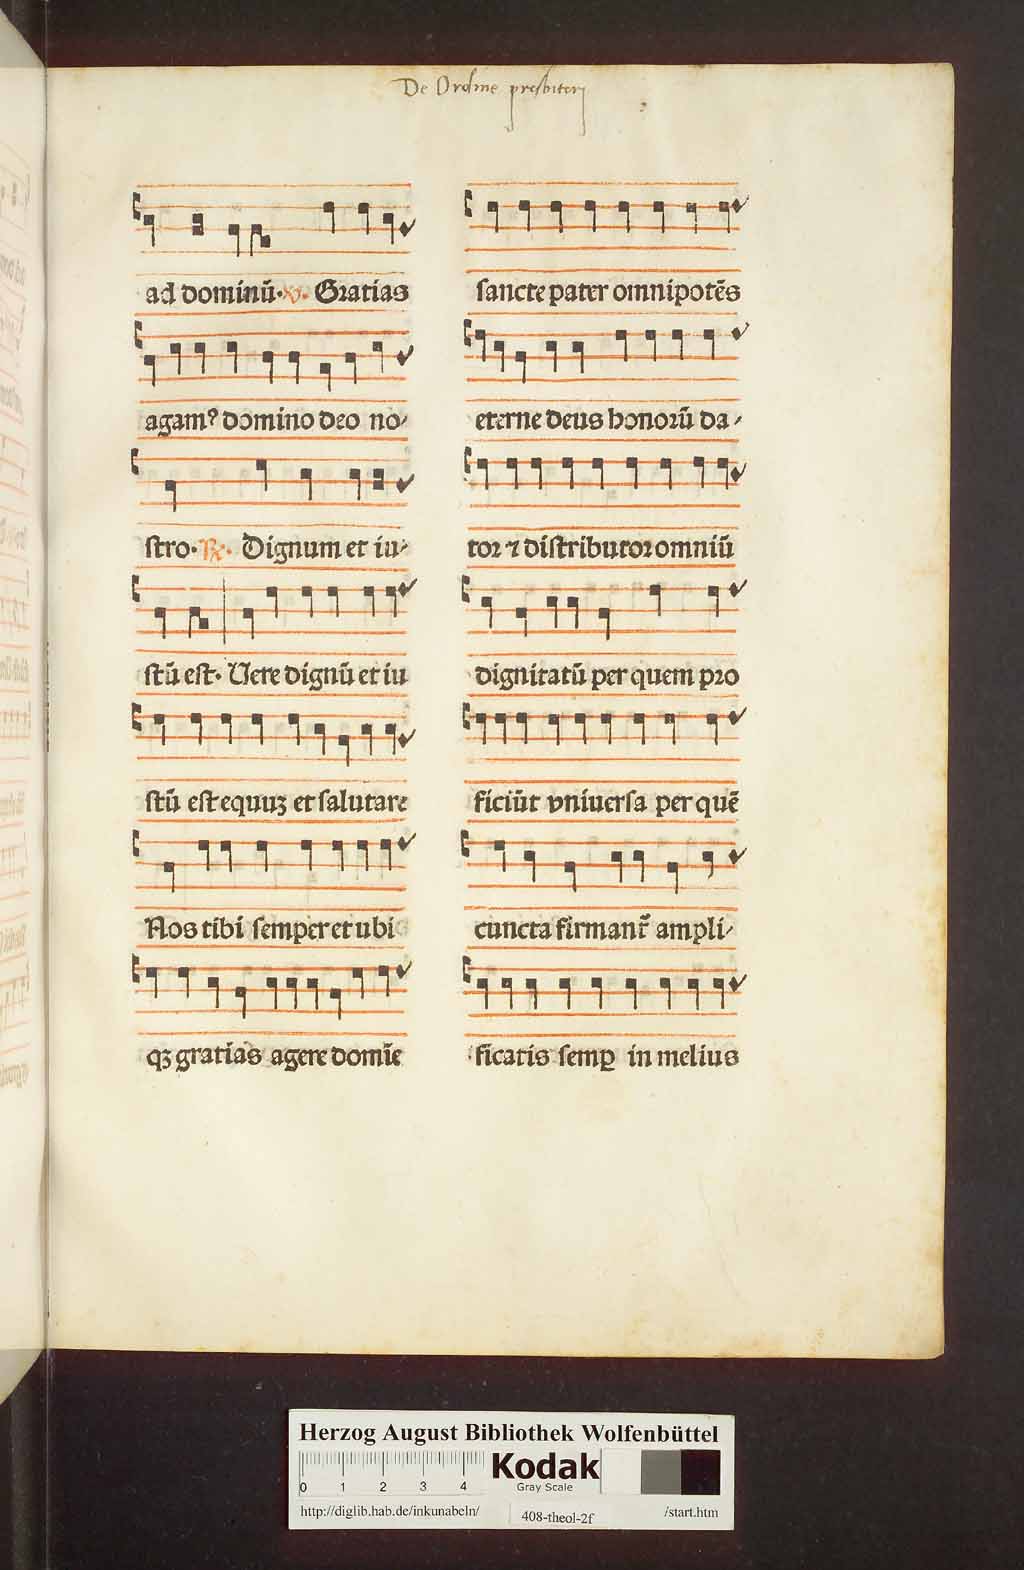 De Ordine presbiterj
ad dominū. V. Gratias
agamꝰ domino deo no⸗
stro. ℞. Dignum et iu⸗
stū est. Uere dignū et iu
stū est equuꝫ et salutare
Nos tibi semper et ubi
qꝫ gratias agere domīe
sancte pater omnipotēs
eterne deus honorū da⸗
tor ⁊ distributor omniū
dignitatū per quem pro
ficiūt vniuersa per quē
cuncta firmantr̄ ampli⸗
ficatis semꝑ in melius
Herzog August Bibliothek Wolfenbüttel
Kodak
Gray Scale
0 1 2 3 4
http://diglib.hab.de/inkunabeln/ 408-theol-2f /start.htm